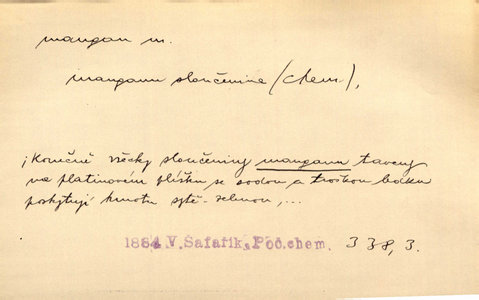 mangan m.
manganu sloučenina (chem),
¡Konečně všecky sloučeniny manganu taveny
na platinovém plíšku se sodou a troškou ledku
poskytují hmotu sytě-zelenou,...
1884 V.Šafařík, Poč.chem. 338,3.